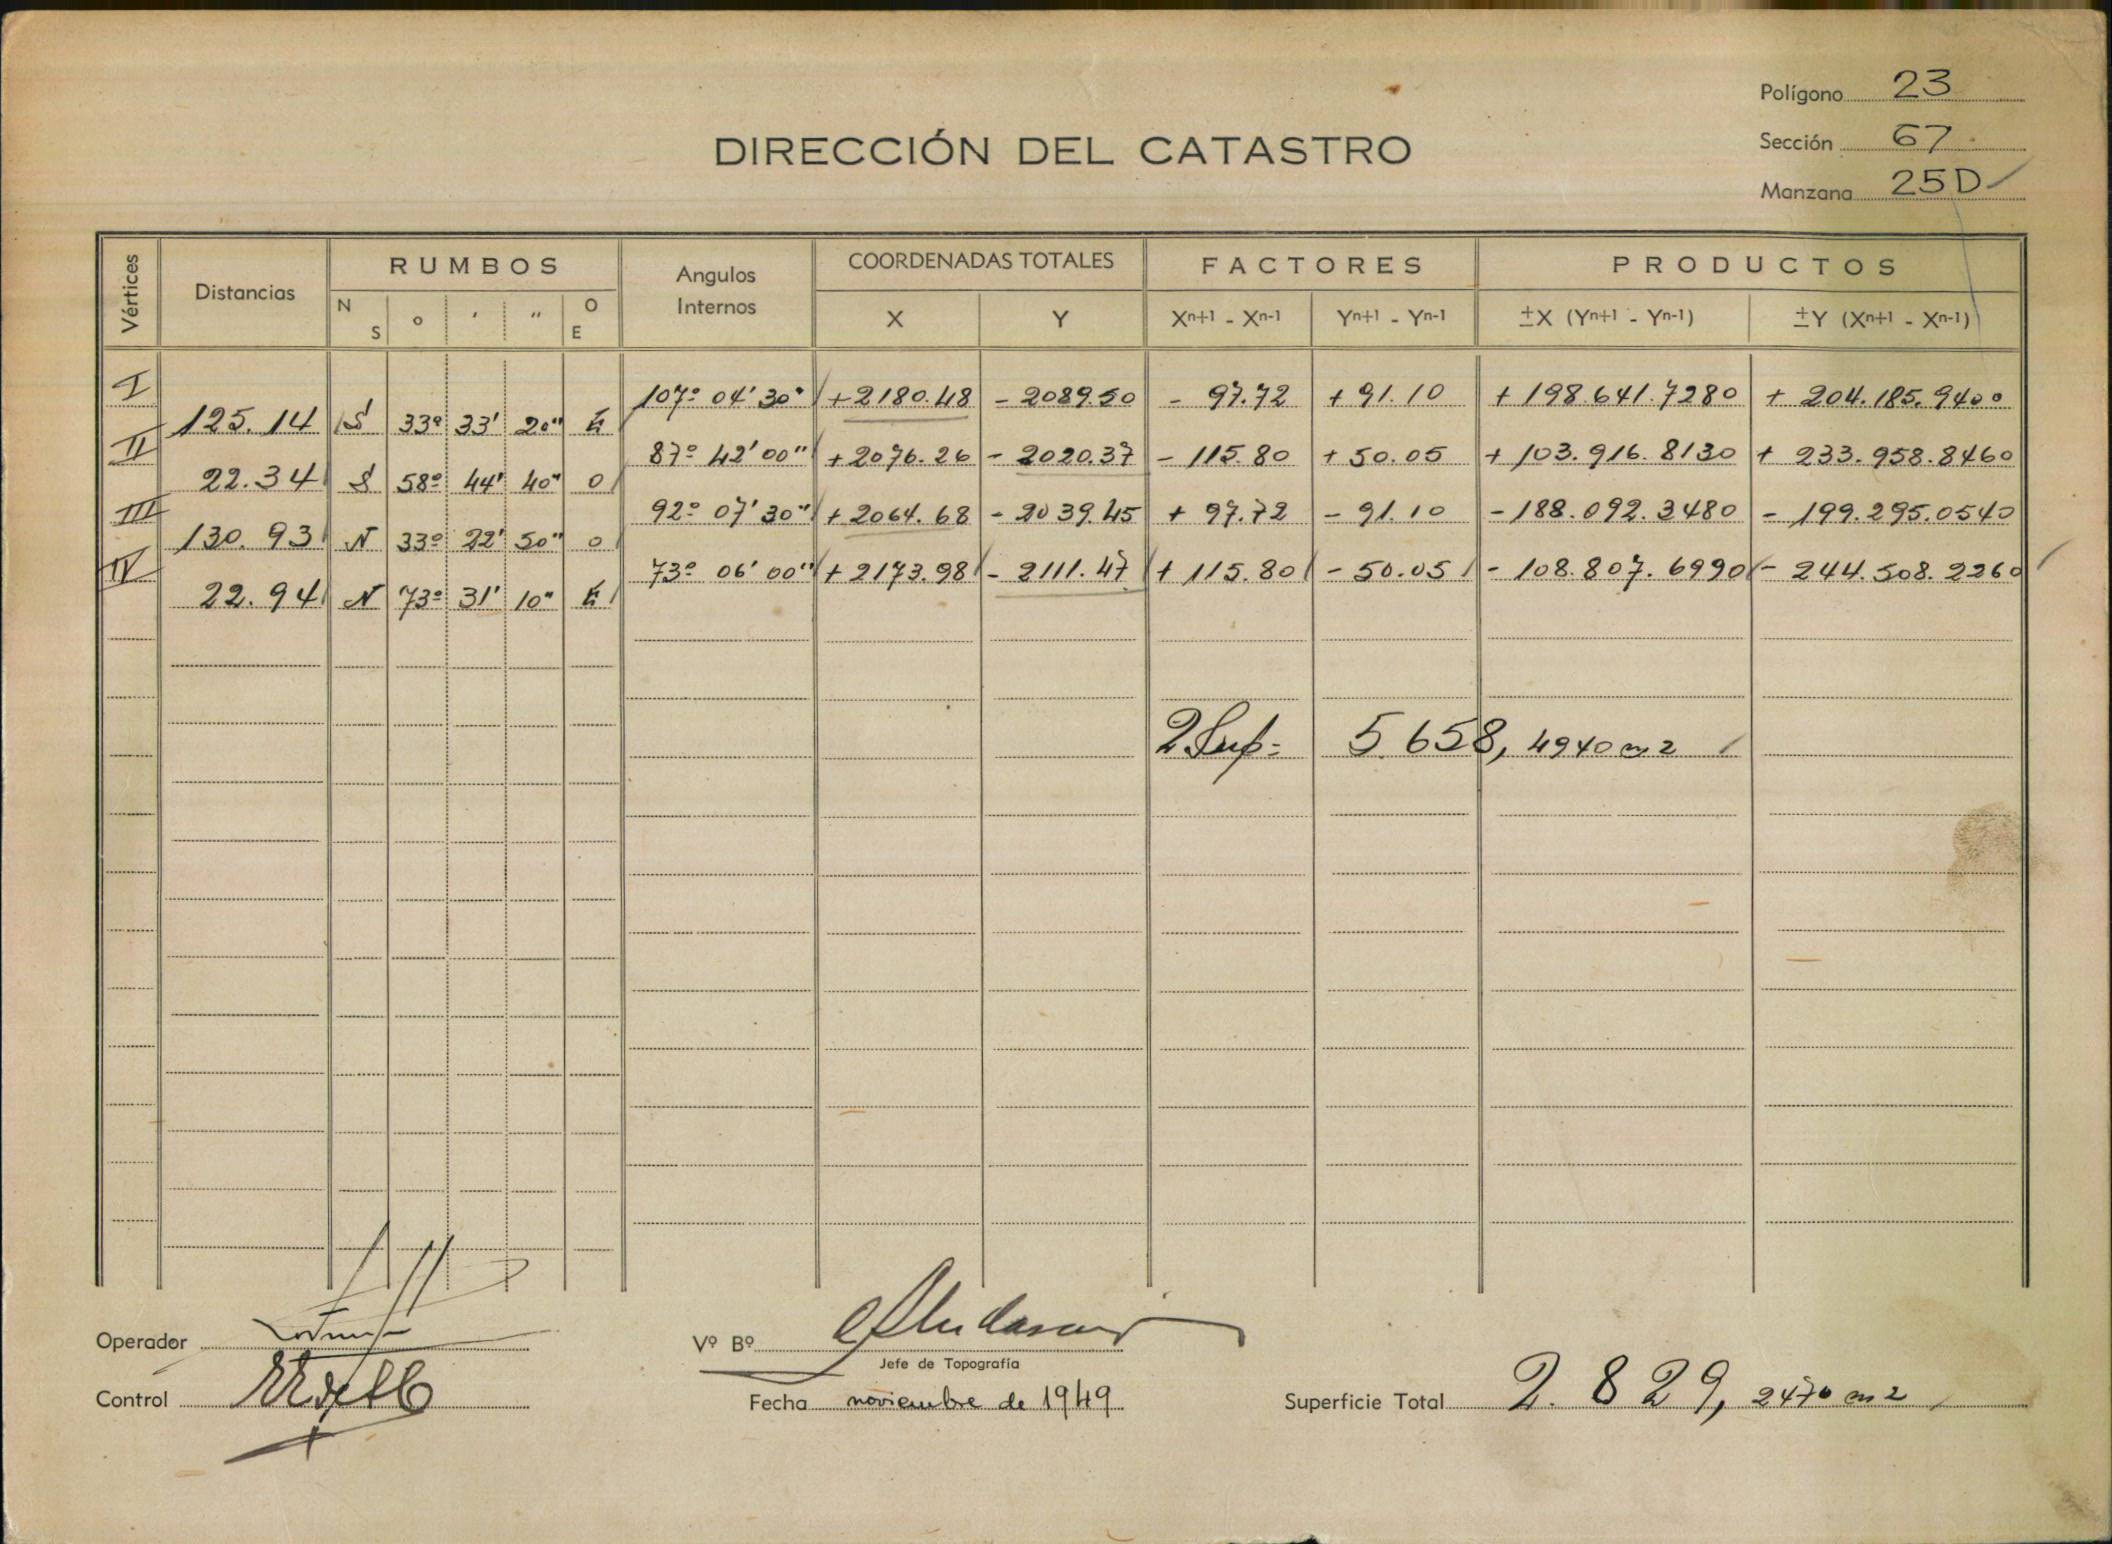 Polígono 23
DIRECCIÓN DEL CATASTRO
Sección 67
Manzana 25D
Vértices Distancias RUMBOS Angulos Internos COORDENADAS TOTALES FACTORES PRODUCTOS
N S ° ' " O E X Y Xn+1 - Xn-1 Yn+1 - Yn-1 ±X (Yn+1 - Yn-1) ±Y (Xn+1 - Xn-1)
I 107° 04' 30" +2180.48 - 2089.50 - 97.72 + 91.10 + 198.641.7280 + 204.185.9400
125.14 S 33° 33' 20" E
II 87° 42' 00" +2076.26 - 2020.37 - 115.80 + 50.05 + 103.916.8130 + 233.958.8460
22.34 S 58° 44' 40" O
III 92° 07' 30" +2064.68 - 2039.45 + 97.72 - 91.10 - 188.092.3480 - 199.295.0540
130.93 N 33° 22' 50" O
IV 73° 06' 00" + 2173.98 - 2111.47 + 115.80 - 50.05 - 108.807.6990 - 244.508.2260
22.94 N 73° 31' 10" E
2 Sup= 5658, 4940 m2
Operador
Vº Bº
Jefe de Topografía
Control
Fecha noviembre de 1949
Superficie Total 2.829, 2470 m2